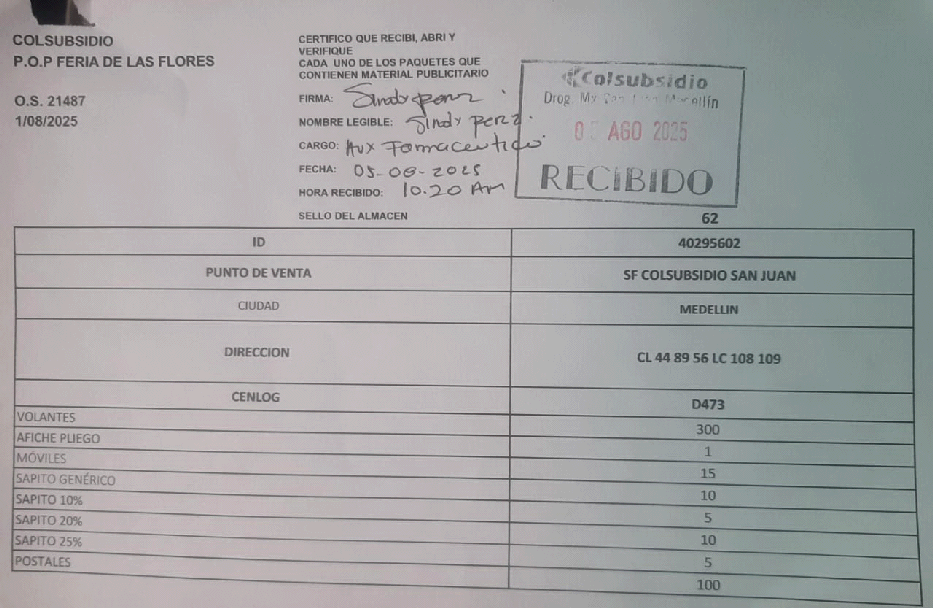 COLSUBSIDIO
P.O.P FERIA DE LAS FLORES
O.S. 21487
1/08/2025
CERTIFICO QUE RECIBI, ABRI Y
VERIFIQUE
CADA UNO DE LOS PAQUETES QUE
CONTIENEN MATERIAL PUBLICITARIO
FIRMA: Sindy perez
NOMBRE LEGIBLE: Sindy perez.
CARGO: Aux Farmaceutico
FECHA: 05-08-2025
HORA RECIBIDO: 10.20 AM
SELLO DEL ALMACEN
Colsubsidio
Drog. My San Juan Medellín
05 AGO 2025
RECIBIDO
62
ID 40295602
PUNTO DE VENTA SF COLSUBSIDIO SAN JUAN
CIUDAD MEDELLIN
DIRECCION CL 44 89 56 LC 108 109
CENLOG D473
VOLANTES 300
AFICHE PLIEGO 1
MÓVILES 15
SAPITO GENÉRICO 10
SAPITO 10% 5
SAPITO 20% 10
SAPITO 25% 5
POSTALES 100